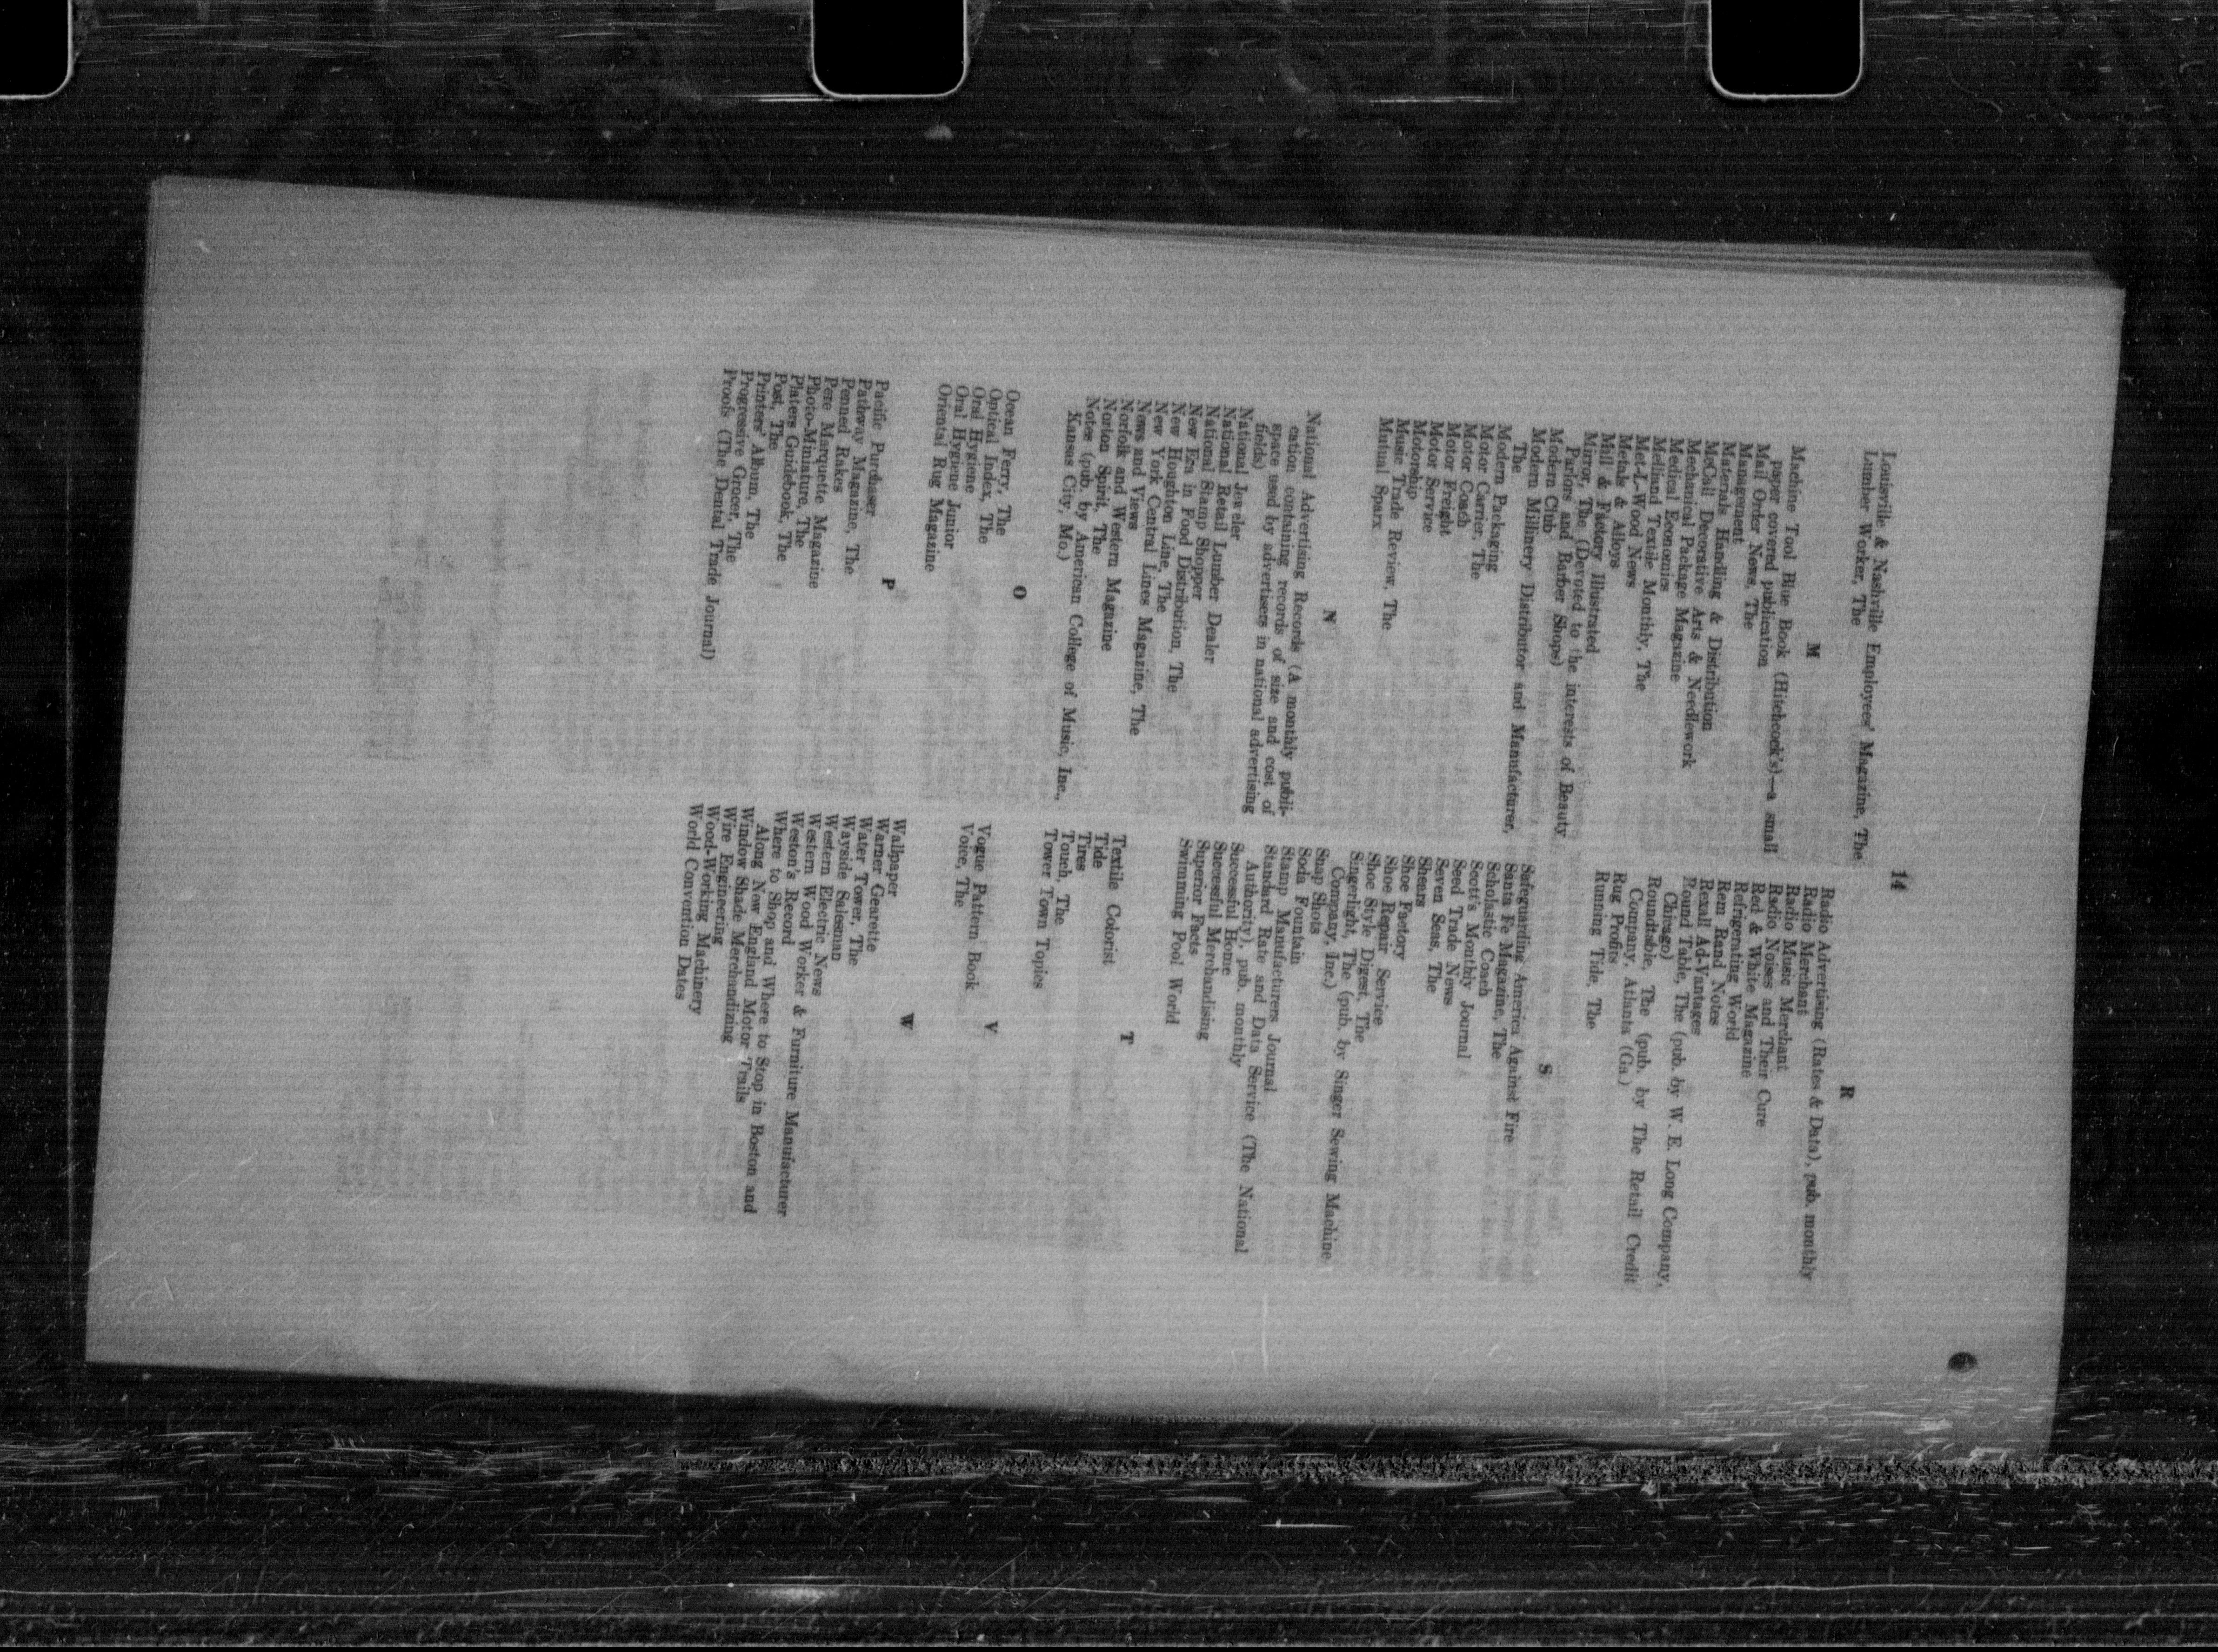 14
Louisville & Nashville Employees' Magazine, The
Lumber Worker, The
M
Machine Tool Blue Book (Hitchcock's)—a small
paper covered publication
Mail Order News, The
Management
Materials Handling & Distribution
McCall Decorative Arts & Needlework
Mechanical Package Magazine
Medical Economics
Midland Textile Monthly, The
Met-L-Wood News
Metals & Alloys
Mill & Factory Illustrated
Mirror, The (Devoted to the interests of Beauty
Parlors and Barber Shops)
Modern Club
Modern Millinery Distributor and Manufacturer,
The
Modern Packaging
Motor Carrier, The
Motor Coach
Motor Freight
Motor Service
Motorship
Music Trade Review, The
Mutual Sparx
N
National Advertising Records (A monthly publi-
cation containing records of size and cost of
space used by advertisers in national advertising
fields)
National Jeweler
National Retail Lumber Dealer
National Stamp Shopper
New Era in Food Distribution
New Houghton Line, The
New York Central Lines Magazine, The
News and Views
Norfolk and Western Magazine
Norton Spirit, The
Notes (pub. by American College of Music, Inc.,
Kansas City, Mo.)
O
Ocean Ferry, The
Optical Index, The
Oral Hygiene
Oral Hygiene Junior
Oriental Rug Magazine
P
Pacific Purchaser
Pathway Magazine, The
Penned Rakes
Pere Marquette Magazine
Photo-Miniature, The
Platers Guidebook, The
Post, The
Printers' Album, The
Progressive Grocer, The
Proofs (The Dental Trade Journal)
R
Radio Advertising (Rates & Data), pub. monthly
Radio Merchant
Radio Music Merchant
Radio Noises and Their Cure
Red & White Magazine
Refrigerating World
Rem Rand Notes
Rexall Ad-Vantages
Round Table, The (pub. by W. E. Long Company,
Chicago)
Roundtable, The (pub. by The Retail Credit
Company, Atlanta (Ga.)
Rug Profits
Running Tide, The
S
Safeguarding America Against Fire
Santa Fe Magazine, The
Scholastic Coach
Scott's Monthly Journal
Seed Trade News
Seven Seas, The
Shears
Shoe Factory
Shoe Repair Service
Shoe Style Digest, The
Singerlight, The (pub. by Singer Sewing Machine
Company, Inc.)
Snap Shots
Soda Fountain
Stamp Manufacturers Journal
Standard Rate and Data Service (The National
Authority), pub. monthly
Successful Home
Successful Merchandising
Superior Facts
Swimming Pool World
T
Textile Colorist
Tide
Tires
Touch, The
Tower Town Topics
V
Vogue Pattern Book
Voice, The
W
Wallpaper
Warner Gearette
Water Tower, The
Wayside Salesman
Western Electric News
Western Wood Worker & Furniture Manufacturer
Weston's Record
Where to Shop and Where to Stop in Boston and
Along New England Motor Trails
Window Shade Merchandizing
Wire Engineering
Wood-Working Machinery
World Convention Dates